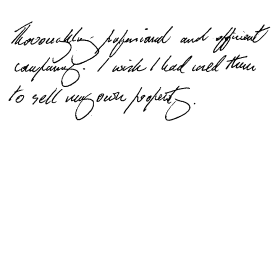 Thoroughly professional and efficient
company. I wish I had used them
to sell my own property.